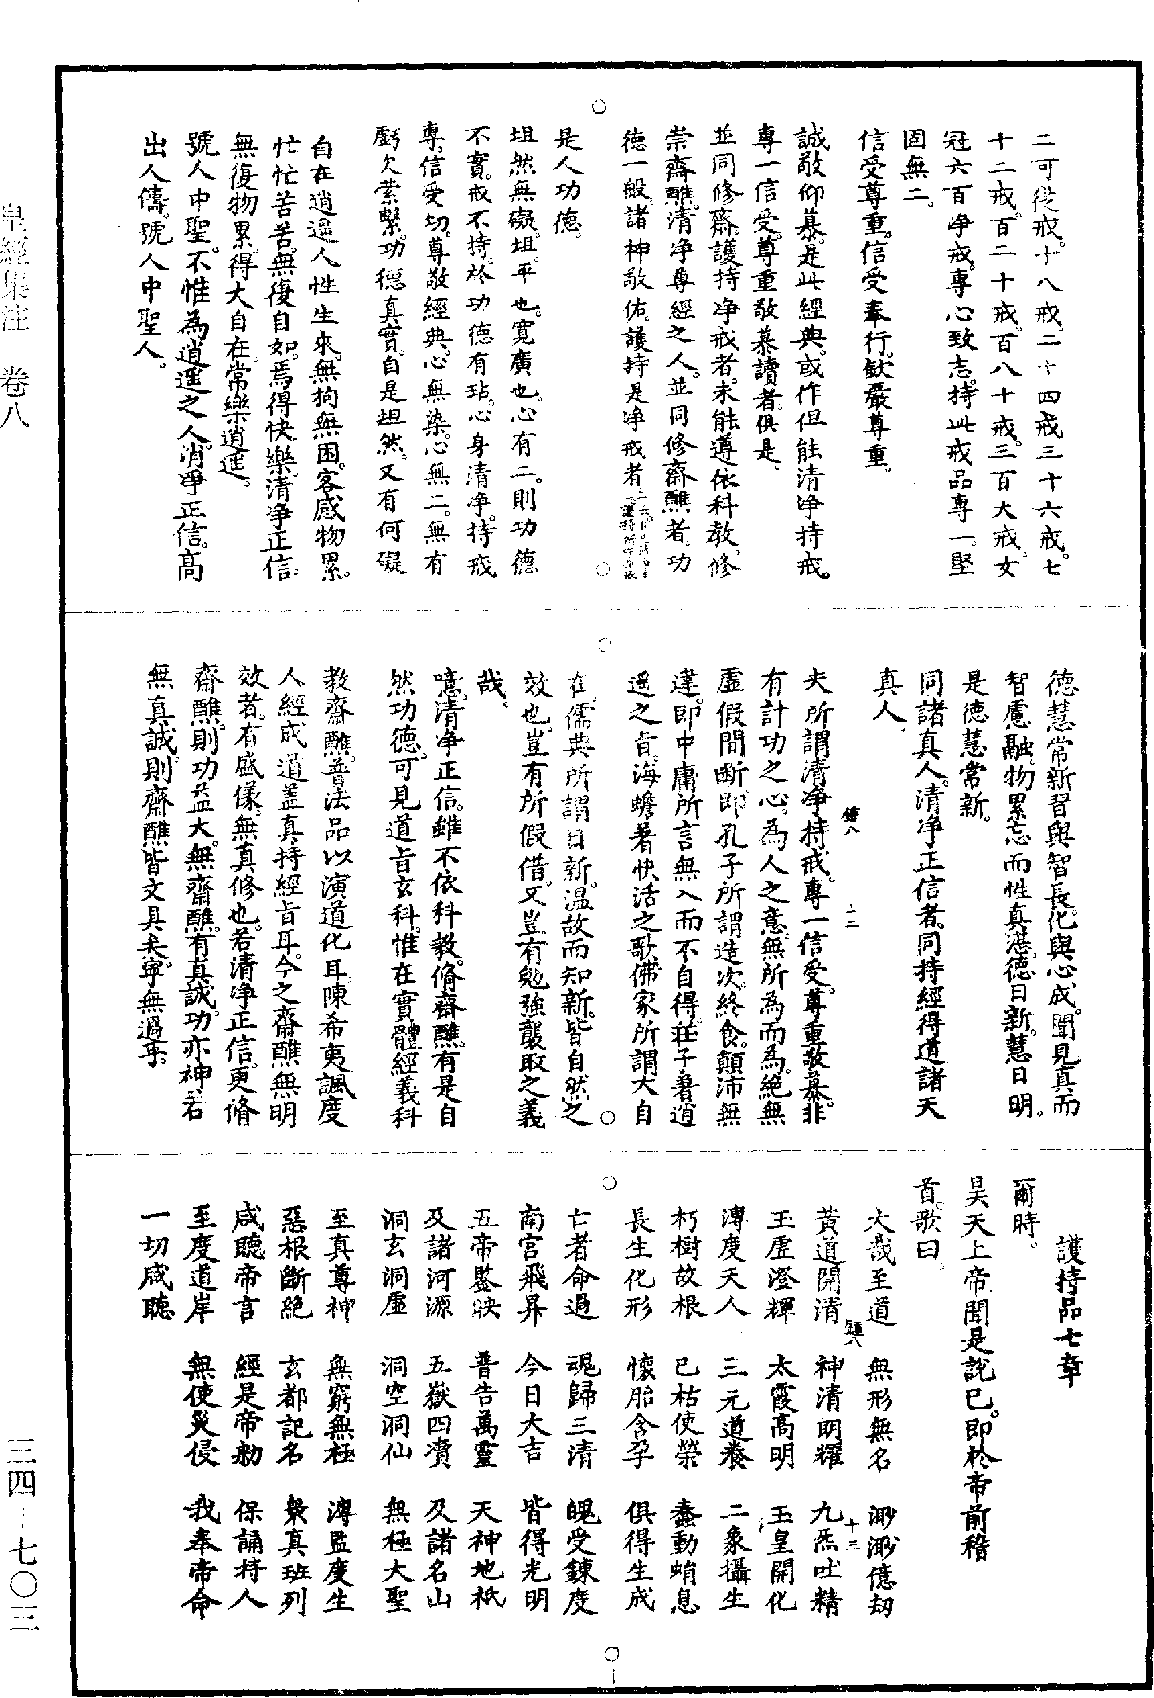 二可從戒。十八戒。二十四戒三十六戒。七
十二戒。百二十戒。百八十戒。三百大戒。女
冠六百淨戒。專心致志。持此戒品專一。堅
固無二。
信受尊重。信受奉行。欽嚴尊重。
誠敬仰慕。是此經典。或作但能清淨持戒。
專一信受。尊重敬慕讀者。俱是。
並同修齋。護持淨戒者。未能遵依科教。修
崇齋醮。清淨專經之人。並同修齋醮者。功
德一般。諸神敬佑。護持是淨戒者
是人功德。
坦然無礙。坦。平也。寬廣也。心有二。則功德
不實。戒不持。於功德有玷。心身清淨。持戒
專。信受切。尊敬經典。心無染。心無二。無有
虧欠縈繫。功德真實。自是坦然。又有何礙
自在逍遥人性生來。無拘無困。客感物累。
忙忙苦苦。無復自如。焉得快樂。清淨正信。
無復物累。得大自在。常樂逍遥。
號人中聖。不惟為逍遥之人。消淨正信。高
出人儔。號人中聖人。
德慧常新習與智長。化與心成。聞見真而
智慮融。物累忘而性真湛。德日新。慧日明。
是德慧常新。
同諸真人。清淨正信者。同持經得道諸天
真人。
夫所謂清淨持戒。專一信受。尊重敬慕。非
有計功之心。為人之意。無所為而為。絕無
虛假間斷。即孔子所謂造次。終食。顛沛無
違。即中庸所言無入而不自得。莊子著逍
遥之旨。海蟾著快活之歌。佛家所謂大自
在。儒典所謂日新。溫故而知新。皆自然之
效也。豈有所假借。又豈有勉強襲取之義
哉。
噫。清淨正信。雖不依科教。脩齋醮。有是自
然功德。可見道旨玄科。惟在實體經義科
教齋醮。普法品以演道化耳。陳希夷諷度
人經成道。蓋真持經旨耳。今之齋醮無明
效者。有感僕。無真修也。若清淨正信。更脩
齋醮。則功益大。無齋醮。有真誠。功亦神。若
無真誠。則齋醮皆文具矣。寧無過乎。
護持品七章
爾時。
昊天上帝。聞是說已。即於帝前稽
首。歌曰。
大哉至道　無形無名　渺渺億劫
黃道開清　神清明耀　九炁吐精
玉虛澄輝　太霞高明　玉皇開化
溥度天人　三元道養　二象攝生
朽樹故根　已枯使榮　蠢動蛸息
長生化形　懷胎含孕　俱得生成
亡者命過　魂歸三清　魄受鍊度
南宮飛昇　今日大吉　皆得光明
五帝鑒映　普告萬靈　天神地祇
及諸河源　五嶽四瀆　及諸名山
洞玄洞虛　洞空洞仙　無極大聖
至真尊神　無窮無極　溥監度生
惡根斷絕　玄都記名　衆真班列
咸聽帝言　經是帝勑　保誦持人
至度道岸　無使災侵　我奉帝命
一切咸聽
皇經集注　卷八
三四—七〇三